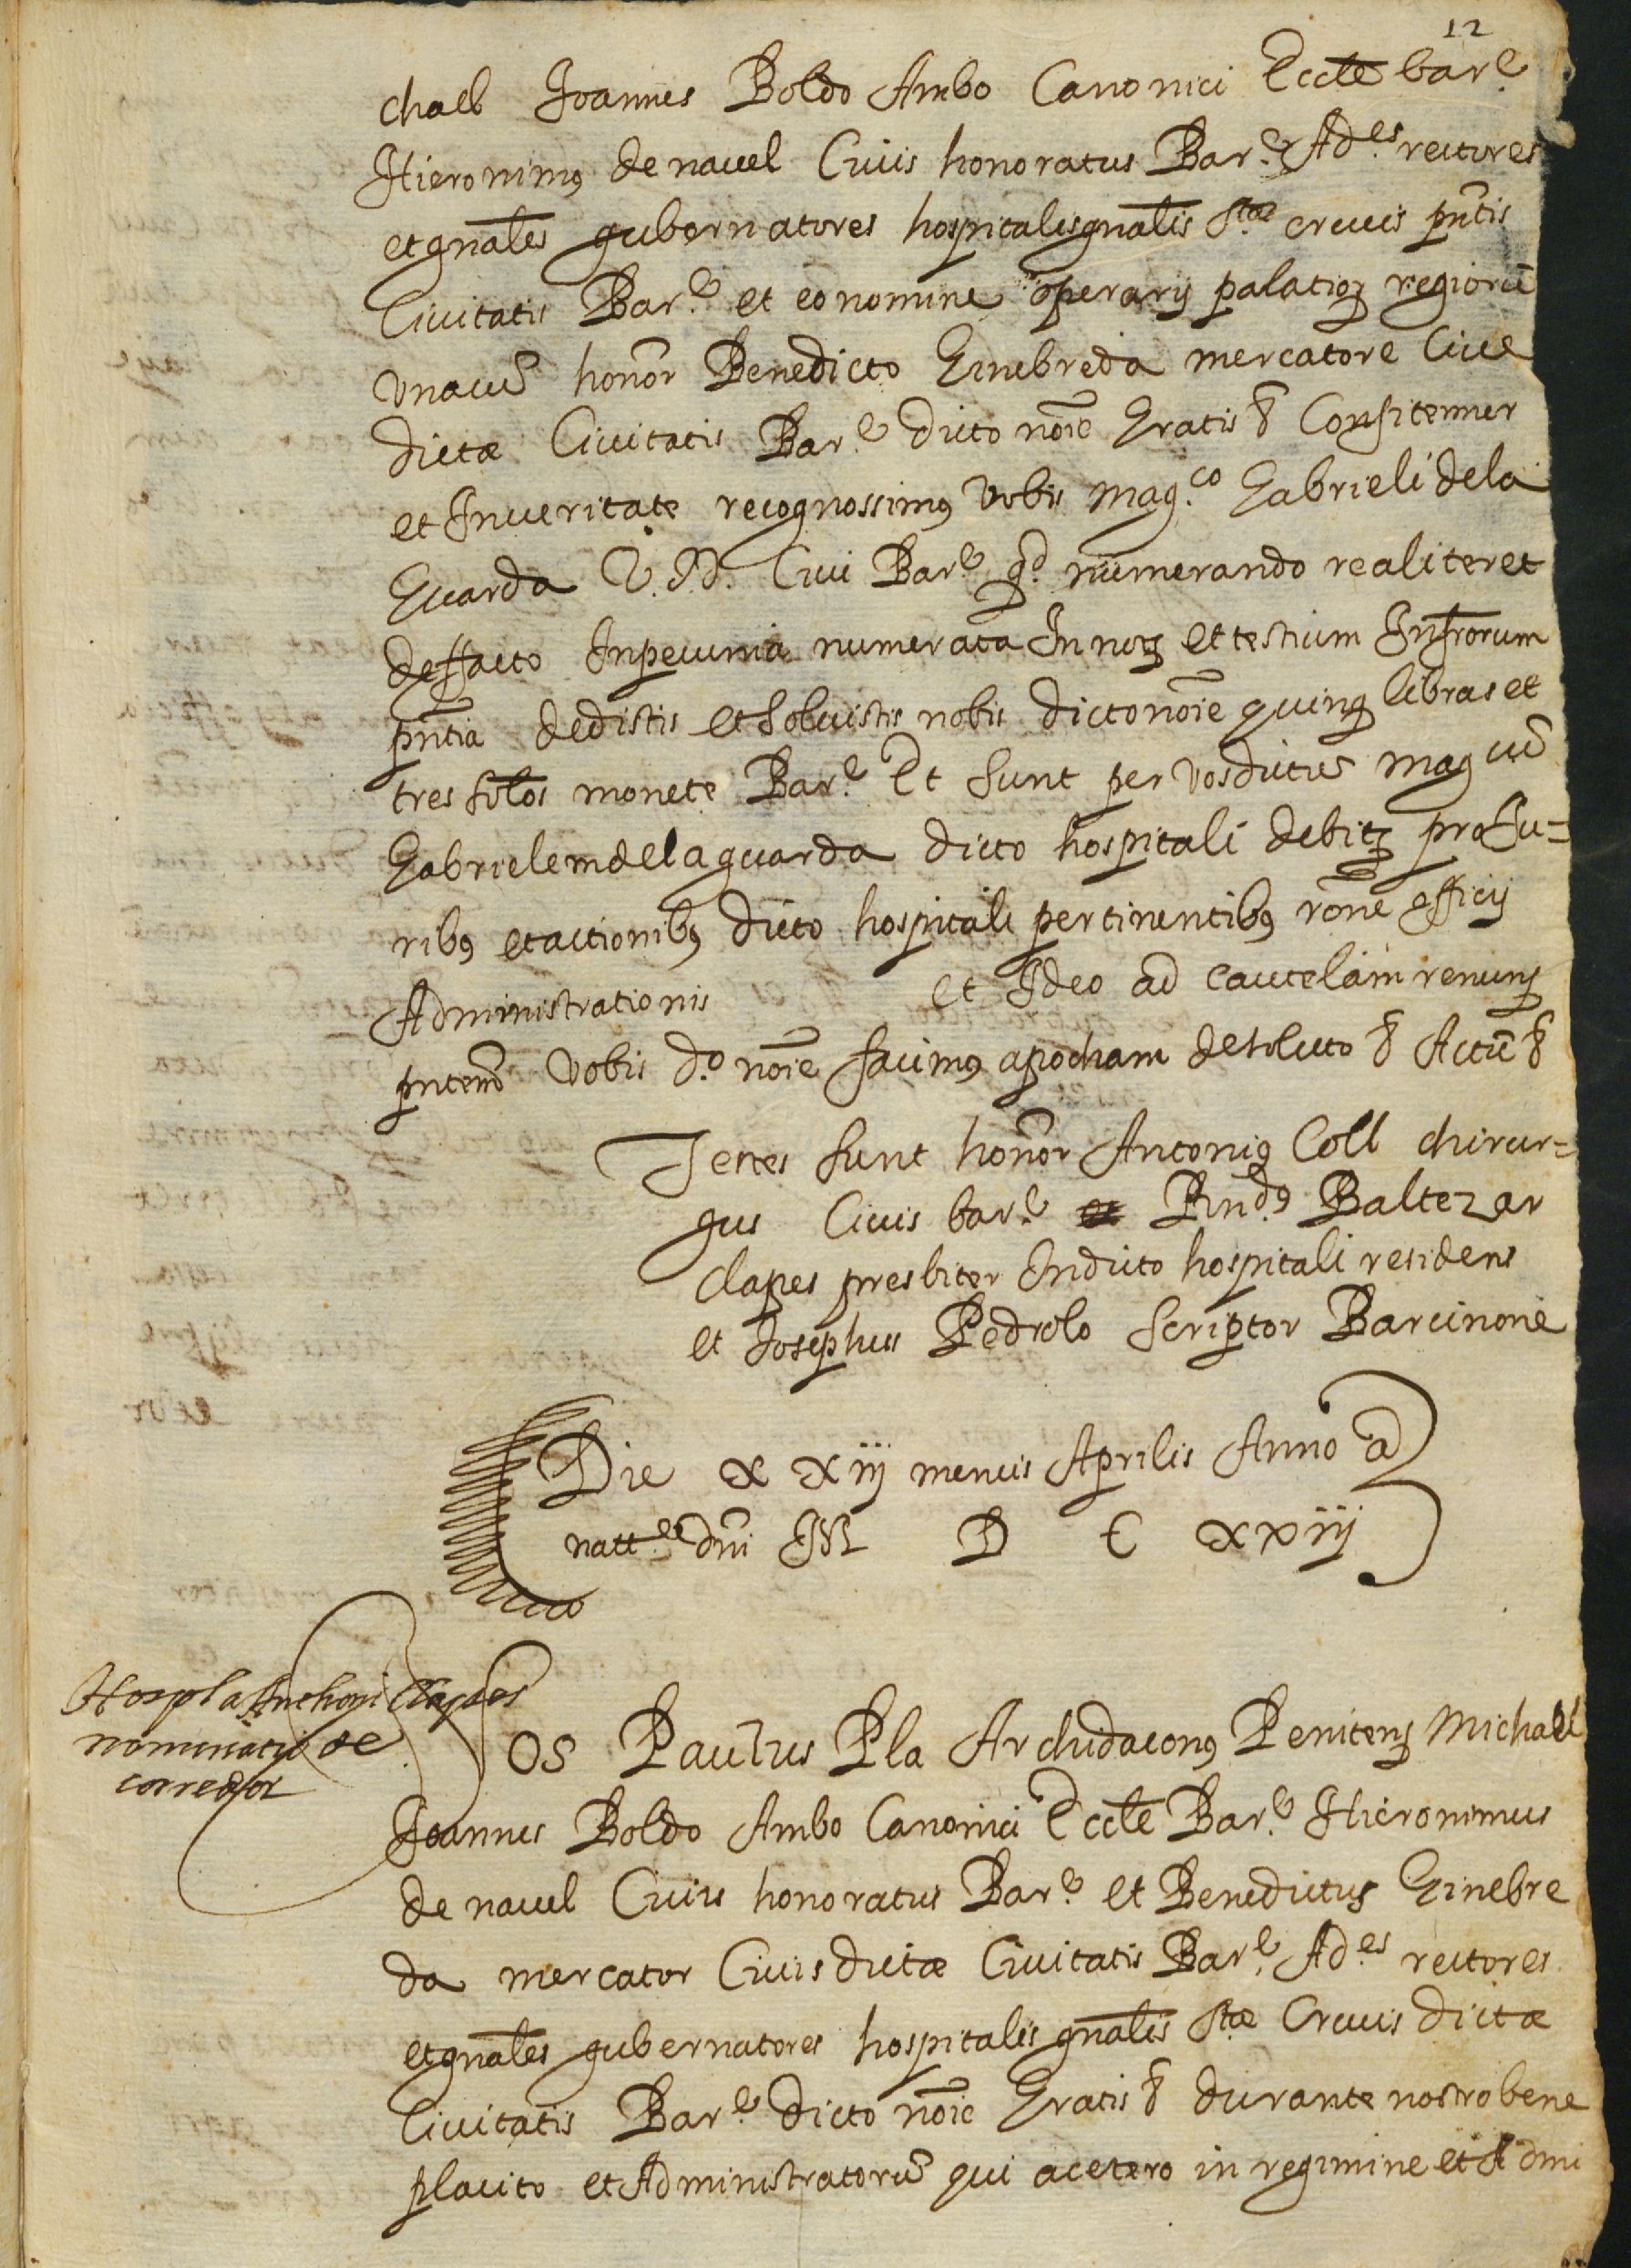 12
chael Joannes Boldo Ambo Canonici Eccłe bar.e
Hieronimus de navel Civis honoratus Bar.e Ad.es rectores
et gnāles gubernatores hospitalis gnālis Stæ crucis pñtis
Civitatis Bar.e et eo nomine operarij palatiorum regiorū
Vnacū honōr Benedicto Ginebreda mercatore Cive
dictæ Civitatis Bar.e dicto nōie Gratis & Confitemur
et In veritate recognossimus Vobis mag.co Gabrieli dela
Guarda V.J.D. Civi Bar.e qd numerando realiter et
deffacto In pecunia numerata In nọ et testium Infrorum
pñtia dedistis et solvistis nobis dicto nōie quinq libras et
tres solos monete Bar.e Et sunt per vos dictū mag cū
Gabrielem dela guarda dicto hospitali debitę pro Ju=
ribus et actionibus dicto hospitali pertinentibus rōne officij
Administrationis et Ideo ad cautelam renuns
pntem Vobis d.o nōie facimus apocham de soluto & Actū &
Testes sunt honōr Antonius Coll chirur=
gus Civis bar.e Rndus Baltezar
Clapes presbiter In dicto hospitali residens
et Josephus Pedrolo Scriptor Barcinone
Die xxiij mensis Aprilis Anno a
natt.e dñi M D C xxiij
Hospl Anthoni Clapes
nominatio de
corredor
OS Paulus Pla Archidiaconus Penitens Michael
Joannes Boldo Ambo Canonici Eccłe Bar.e Hieronimus
de navel Civis honoratus Bar.e et Benedictus Ginebre
da mercator Civis dictæ Civitatis Bar.e Ad.es rectores
et gnāles gubernatores hospitalis gnālis Stæ Crucis dictæ
Civitatis Bar.e dicto nōie Gratis & durante nostro bene
placito et Administratorū qui acetero in regimine et Admi